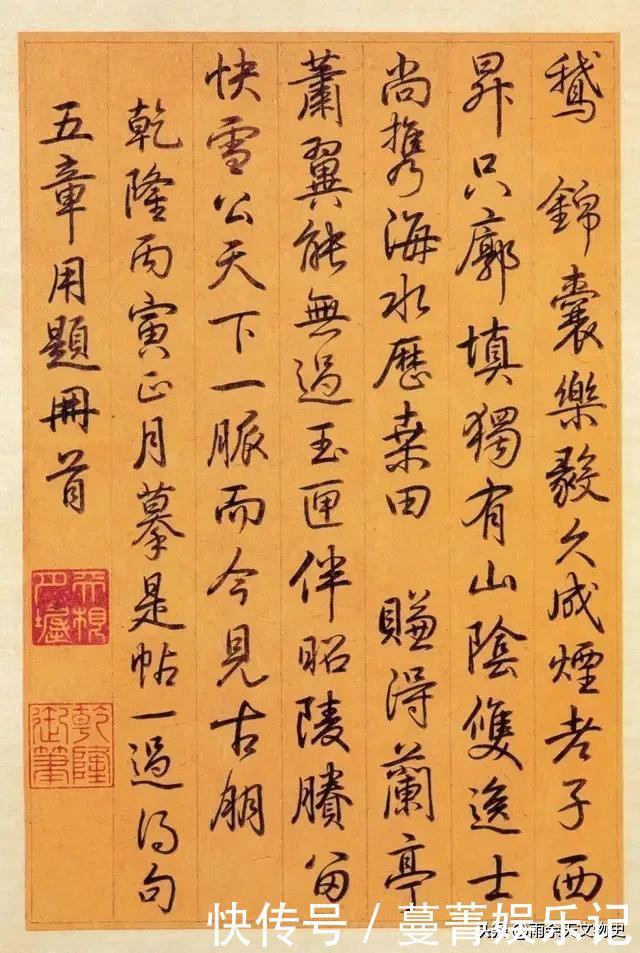 鵝 錦囊樂毅久成煙老子西
昇只廓填獨有山陰雙逸士
尚携海水歷桑田 賺得蘭亭
蕭翼能無過玉匣伴昭陵賸留
快雪公天下一脈而今見古朋
乾隆丙寅正月摹是帖一過得句
五章用題冊首
乾隆御筆
快传号 / 蔓菁娱乐记